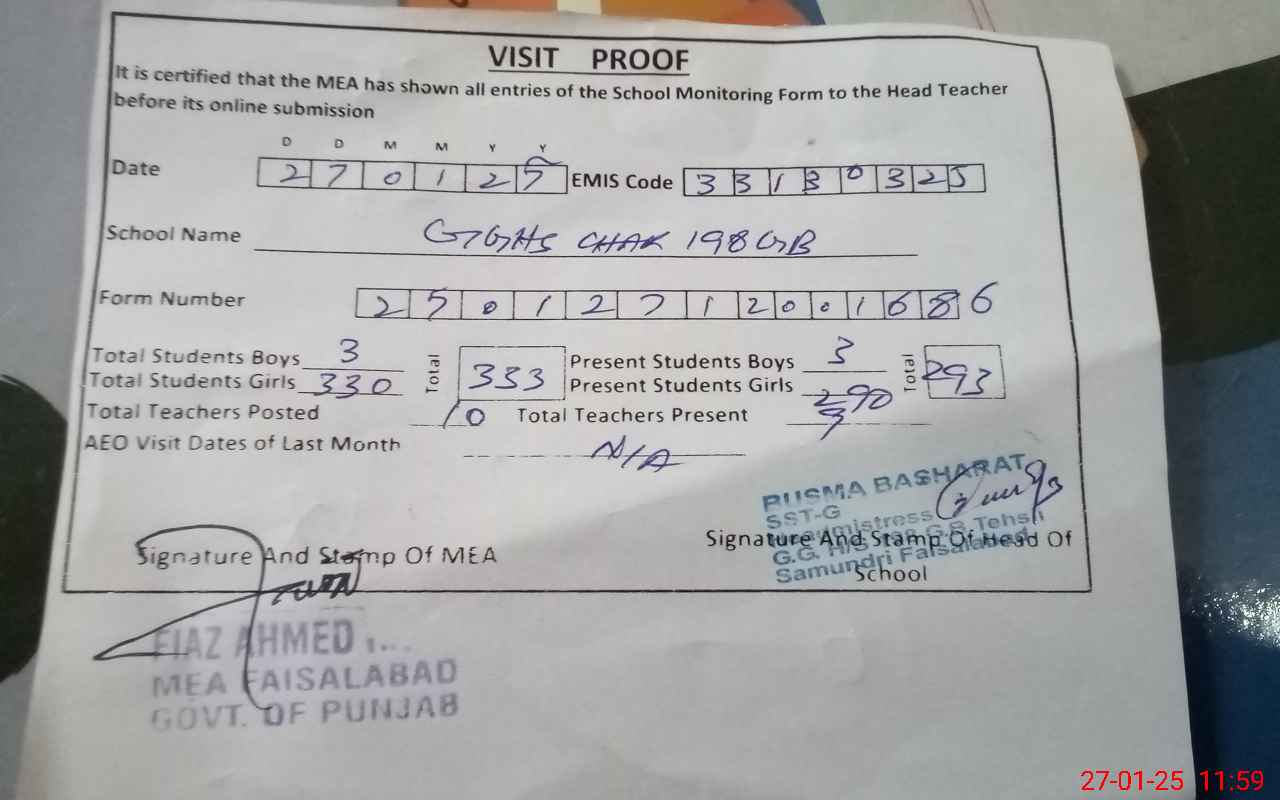 VISIT PROOF
It is certified that the MEA has shown all entries of the School Monitoring Form to the Head Teacher
before its online submission
D D M M Y Y
Date 2 7 0 1 2 5 EMIS Code 3 3 1 3 0 3 2 5
School Name GGHS CHAK 198 GB
Form Number 2 5 0 1 2 7 1 2 0 0 1 6 8 6
Total Students Boys 3 Total 333 Present Students Boys 3 Total 293
Total Students Girls 330 Present Students Girls 290
Total Teachers Posted 10 Total Teachers Present 9
AEO Visit Dates of Last Month N/A
BUSMA BASHARAT
SST-G
Signature And Stamp Of MEA
Signature And Stamp Of Head Of
School
G.B. Tehsil
Samundri Faisalabad
FIAZ AHMED
MEA FAISALABAD
GOVT. OF PUNJAB
27-01-25 11:59